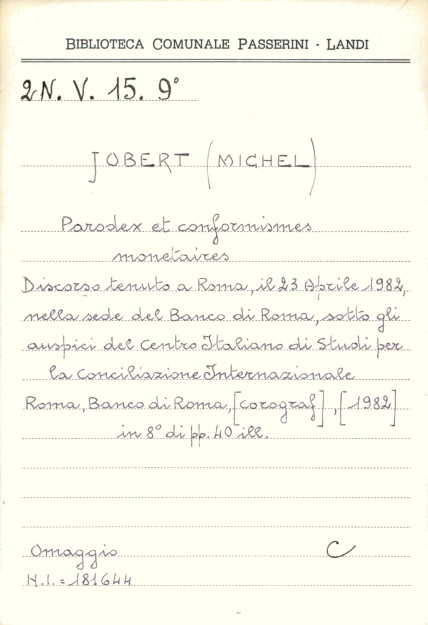 BIBLIOTECA COMUNALE PASSERINI - LANDI
2N. V. 15. 9°
JOBERT (MICHEL)
Parodex et conformismes
monetaires
Discorso tenuto a Roma, il 23 Aprile 1982,
nella sede del Banco di Roma, sotto gli
auspici del Centro Italiano di Studi per
la Conciliazione Internazionale
Roma, Banco di Roma, [corograf], [1982]
in 8° di pp. 40 ill.
Omaggio C
N.I. = 181644